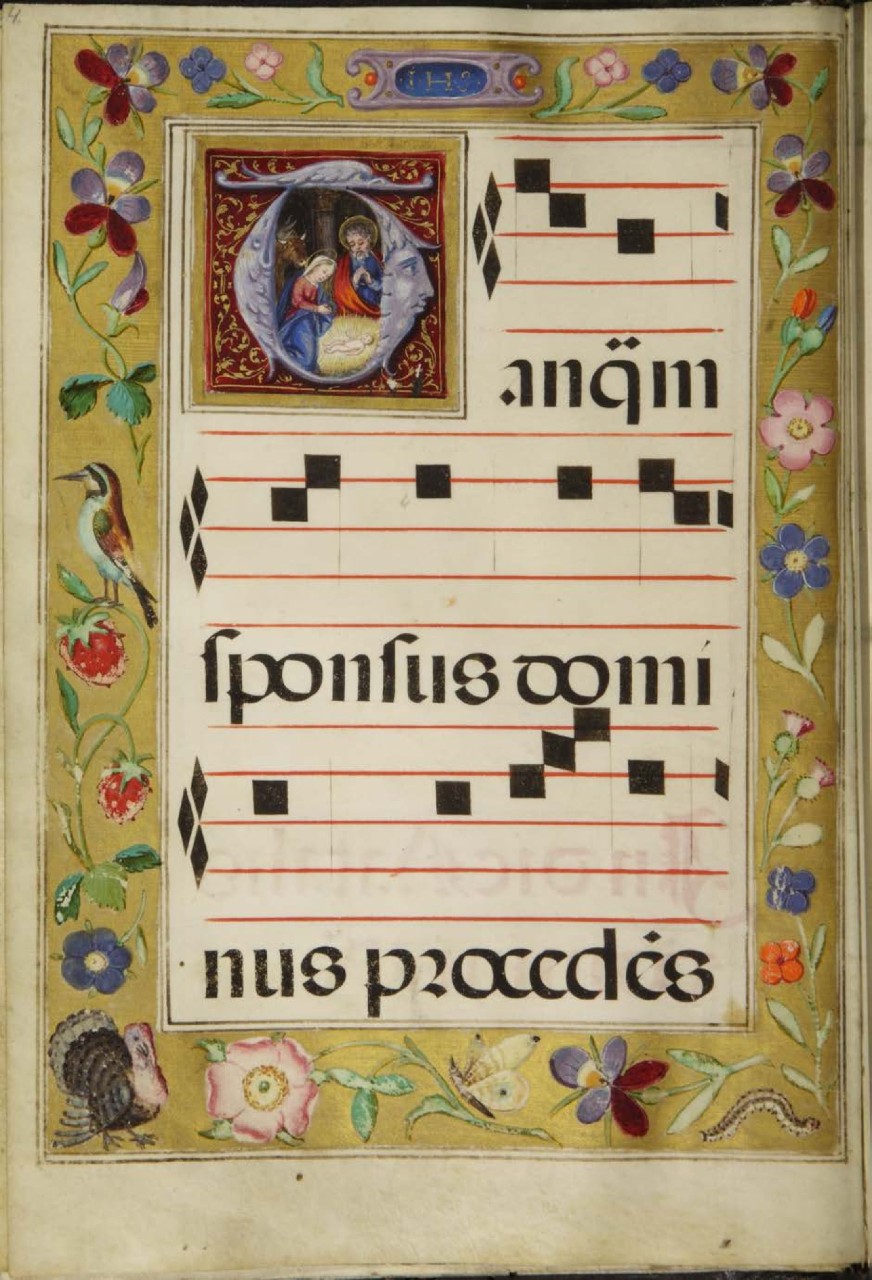 4.
IHS
Tanq̄m
ſponſus domi
nus procedēs